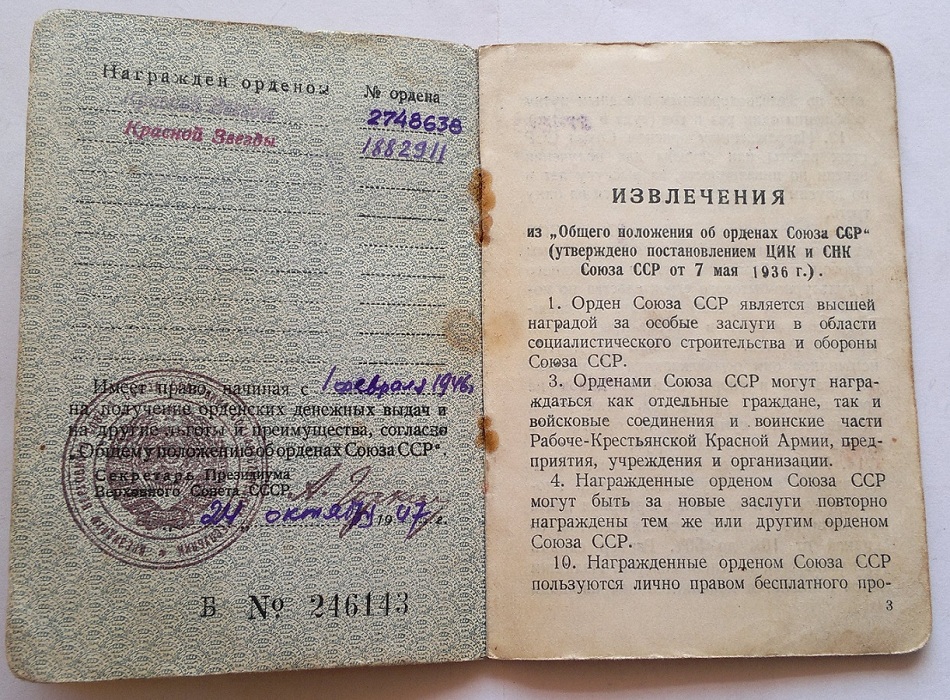 Награжден орденом
№ ордена
Красной Звезды
2748638
Красной Звезды
1882911
Имеет право, начиная с 1 февраля 1946
на получение орденских денежных выдач и
на другие льготы и преимущества, согласно
„Общему положению об орденах Союза ССР“.
Секретарь Президиума
Верховного Совета СССР
24 октября 1947 г.
Б № 246143
ИЗВЛЕЧЕНИЯ
из „Общего положения об орденах Союза ССР“
(утверждено постановлением ЦИК и СНК
Союза ССР от 7 мая 1936 г.).
1. Орден Союза ССР является высшей
наградой за особые заслуги в области
социалистического строительства и обороны
Союза ССР.
3. Орденами Союза ССР могут награ-
ждаться как отдельные граждане, так и
войсковые соединения и воинские части
Рабоче-Крестьянской Красной Армии, пред-
приятия, учреждения и организации.
4. Награжденные орденом Союза ССР
могут быть за новые заслуги повторно
награждены тем же или другим орденом
Союза ССР.
10. Награжденные орденом Союза ССР
пользуются лично правом бесплатного про-
3